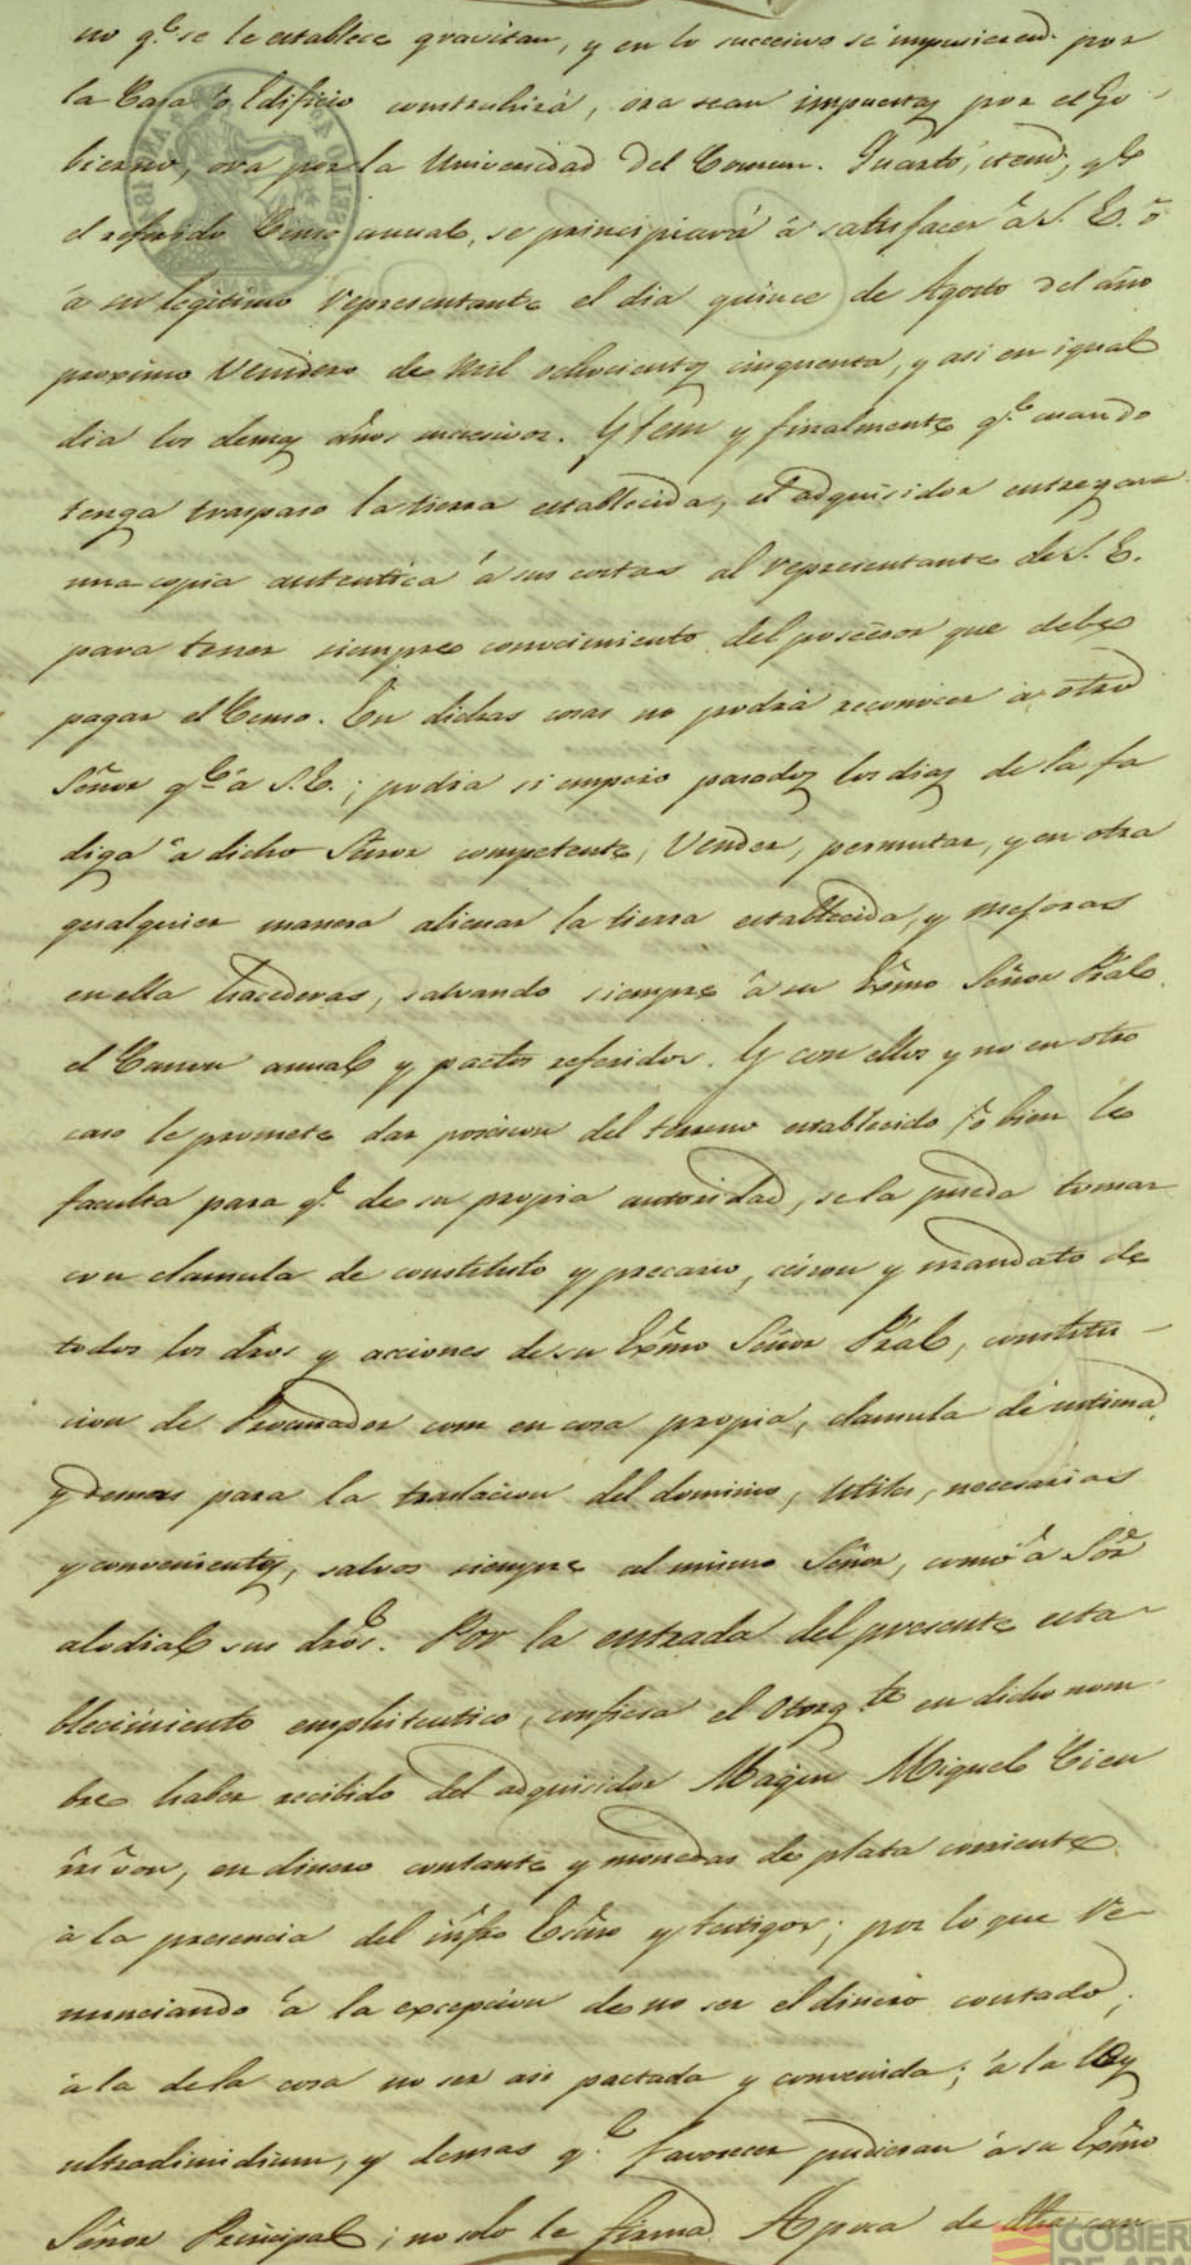 no q.e se le establece gravitan, y en lo succecivo se impusieren por
la Casa ó Edificio construhirá, ora sean impuestas por el Go-
bierno, ora por la Universidad del Comun. Quarto, item, q.e
el referido Censo annual, se principiará á satisfacer á S. E. ó
á su legitimo representante el dia quince de Agosto del año
proximo Venidero de Mil ochocientos cinquenta, y asi en igual
dia los demas años sucesivos. Ytem y finalmente q.e cuando
tenga traspaso la tierra establecida, el adquisidor entregara
una copia autentica á sus costas al representante de S. E.
para tener siempre conocimiento del poseesor que debe
pagar el Censo. En dichas cosas no podrá reconocer á otro
Señor q.e á S. E.; podra si empero pasados los dias de la fa
diga á dicho Señor competente, Vender, permutar, y en otra
qualquier manera alienar la tierra establecida, y mejoras
en ella hacederas, salvando siempre á su Exmo Señor Pral
el Canon annual y pactos referidos. Y con ellos y no en otro
caso le promete dar posesion del terreno establecido, ó bien le
faculta para q.e de su propia autoridad, se la pueda tomar
con clausula de constituto y precario, cesion y mandato de
todos los dros y acciones de su Exmo Señor Pral, constitu-
cion de Procurador com en cosa propia, clausula de intima,
y demas para la traslacion del dominio, utiles, necesarias
y convenientes, salvos siempre al mismo Señor, como á Sor
alodial sus dros. Por la entrada del presente esta-
blecimiento emphiteutico, confiesa el Otorg.te en dicho nom-
bre haber recibido del adquisidor Magin Miquel Cien
rs von, en dinero contante y monedas de plata corriente
á la presencia del infro Esno y testigos; por lo que re-
nunciando á la excepcion de no ser el dinero contado;
á la de la cosa no ser asi pactada y convenida; á la Ley
ultradimidium, y demas q.e favorecer pudieran á su Exmo
Señor Principal; no solo le firma Apoca de dha can-
GOBIER